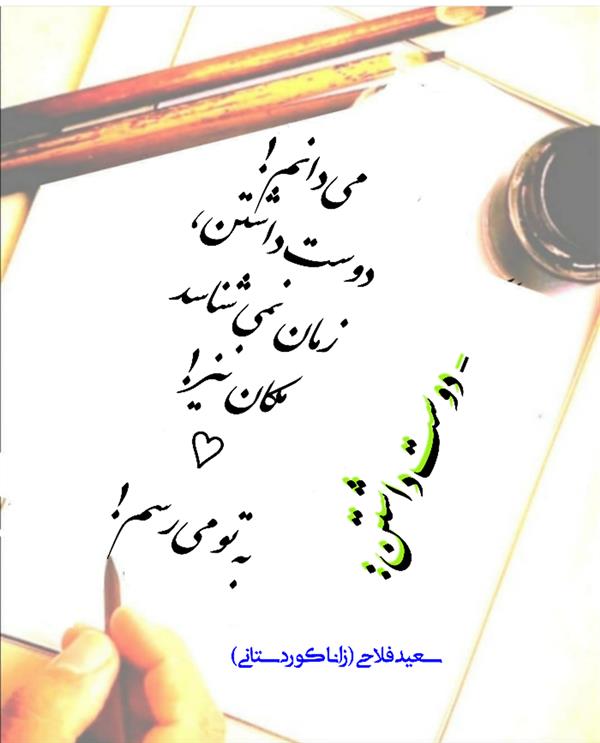 - دوست داشتن:
می دانم!
دوست داشتن،
زمان نمی شناسد
مکان نیز!
♡
به تو می رسم!
سعید فلاحی (زانا کوردستانی)